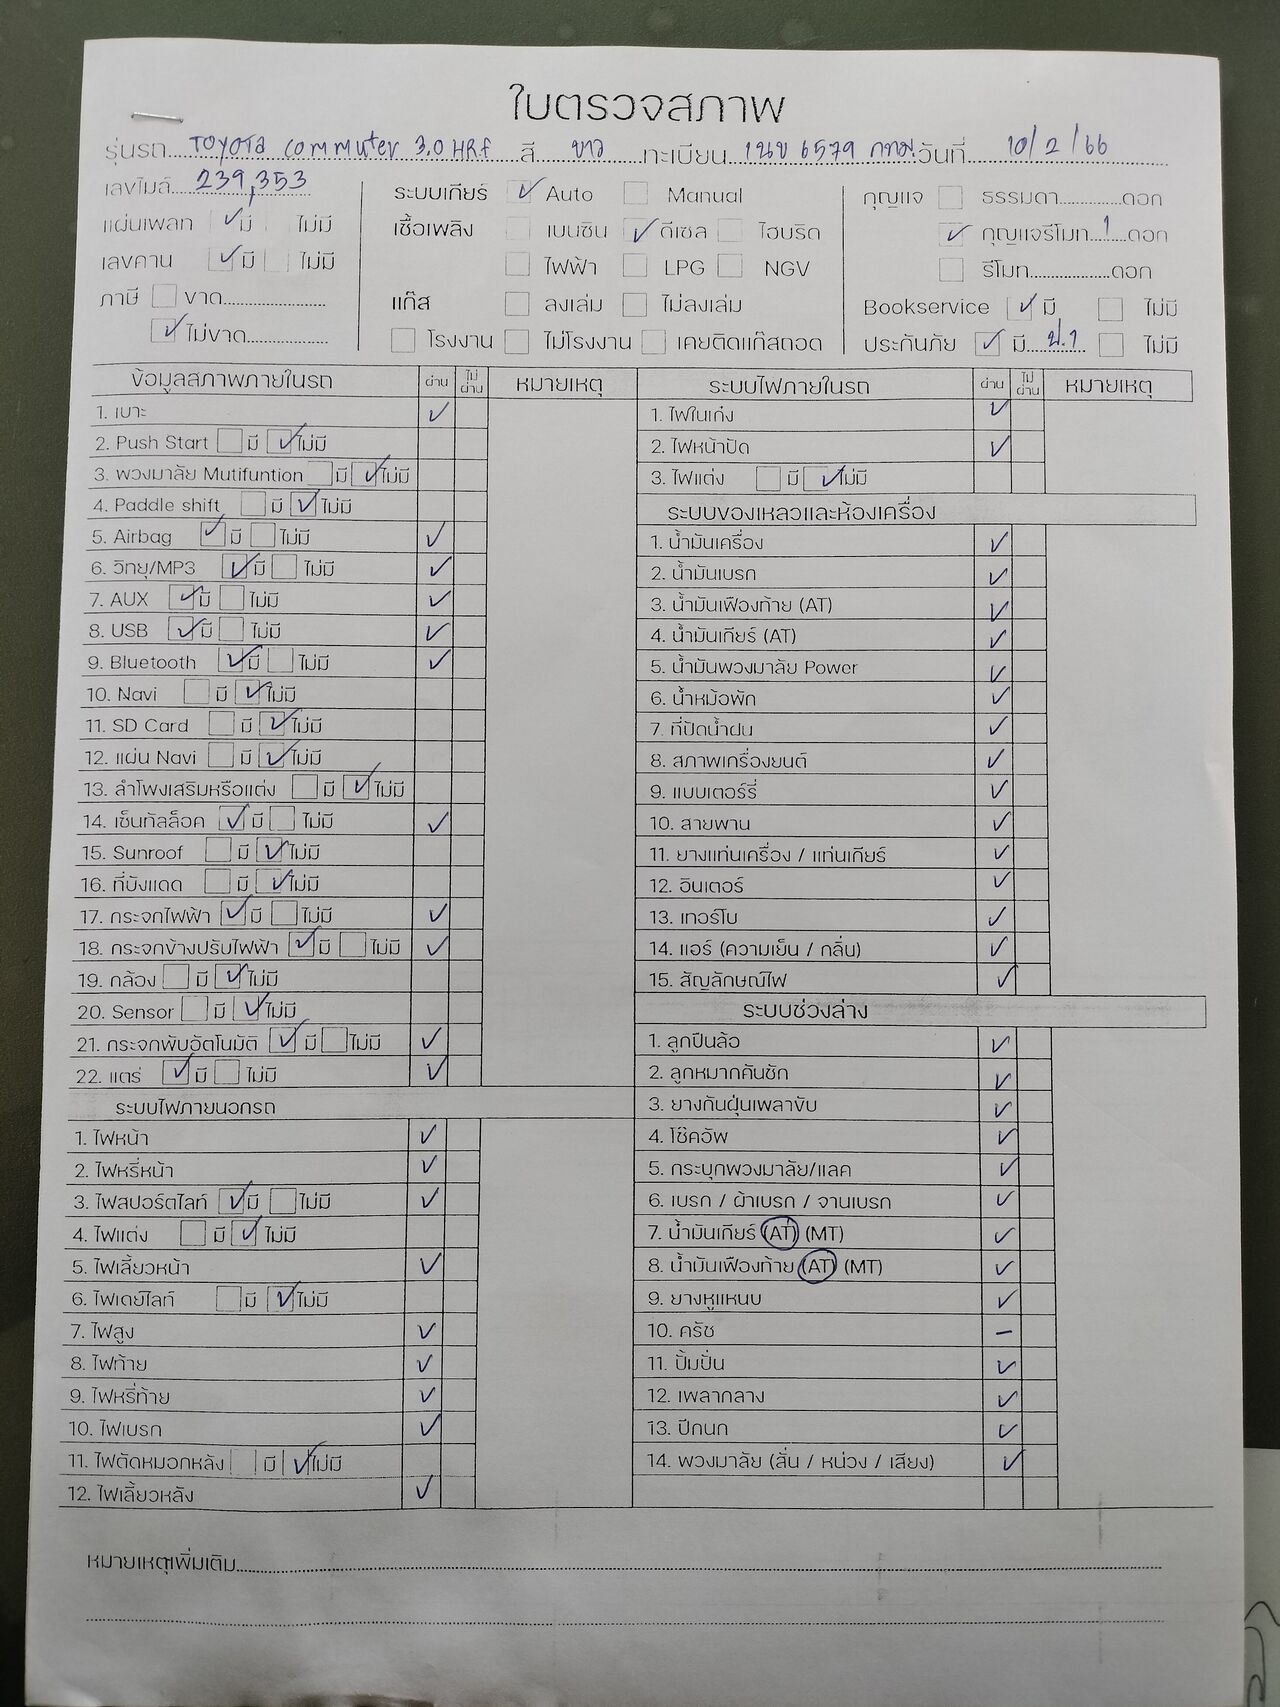 ใบตรวจสภาพ
รุ่นรถ TOYOTA commuter 3.0 HRf สี ขาว ทะเบียน 1นข 6579 กทม. วันที่ 10/2/66
เลขไมล์ 239,353 ระบบเกียร์ ✓ Auto Manual กุญแจ ธรรมดา..............ดอก
แผ่นเพลท ✓ มี ไม่มี เชื้อเพลิง เบนซิน ✓ ดีเซล ไฮบริด ✓ กุญแจรีโมท 1 ดอก
เลขคาน ✓ มี ไม่มี ไฟฟ้า LPG NGV รีโมท..............ดอก
ภาษี ขาด.............. แก๊ส ลงเล่ม ไม่ลงเล่ม Bookservice ✓ มี ไม่มี
✓ ไม่ขาด.............. โรงงาน ไม่โรงงาน เคยติดแก๊สถอด ประกันภัย ✓ มี ป.1 ไม่มี
ข้อมูลสภาพภายในรถ ผ่าน ไม่ผ่าน หมายเหตุ
1. เบาะ ✓
2. Push Start มี ✓ ไม่มี
3. พวงมาลัย Mutifuntion มี ✓ ไม่มี
4. Paddle shift มี ✓ ไม่มี
5. Airbag ✓ มี ไม่มี ✓
6. วิทยุ/MP3 ✓ มี ไม่มี ✓
7. AUX ✓ มี ไม่มี ✓
8. USB ✓ มี ไม่มี ✓
9. Bluetooth ✓ มี ไม่มี ✓
10. Navi มี ✓ ไม่มี
11. SD Card มี ✓ ไม่มี
12. แผ่น Navi มี ✓ ไม่มี
13. ลำโพงเสริมหรือแต่ง มี ✓ ไม่มี
14. เซ็นทัลล็อค ✓ มี ไม่มี ✓
15. Sunroof มี ✓ ไม่มี
16. ที่บังแดด มี ✓ ไม่มี
17. กระจกไฟฟ้า ✓ มี ไม่มี ✓
18. กระจกข้างปรับไฟฟ้า ✓ มี ไม่มี ✓
19. กล้อง มี ✓ ไม่มี
20. Sensor มี ✓ ไม่มี
21. กระจกพับอัตโนมัติ ✓ มี ไม่มี ✓
22. แตร่ ✓ มี ไม่มี ✓
ระบบไฟภายนอกรถ
1. ไฟหน้า ✓
2. ไฟหรี่หน้า ✓
3. ไฟสปอร์ตไลท์ ✓ มี ไม่มี ✓
4. ไฟแต่ง มี ✓ ไม่มี
5. ไฟเลี้ยวหน้า ✓
6. ไฟเดย์ไลท์ มี ✓ ไม่มี
7. ไฟสูง ✓
8. ไฟท้าย ✓
9. ไฟหรี่ท้าย ✓
10. ไฟเบรก ✓
11. ไฟตัดหมอกหลัง มี ✓ ไม่มี
12. ไฟเลี้ยวหลัง ✓
ระบบไฟภายในรถ ผ่าน ไม่ผ่าน หมายเหตุ
1. ไฟในเก๋ง ✓
2. ไฟหน้าปัด ✓
3. ไฟแต่ง มี ✓ ไม่มี
ระบบของเหลวและห้องเครื่อง
1. น้ำมันเครื่อง ✓
2. น้ำมันเบรก ✓
3. น้ำมันเฟืองท้าย (AT) ✓
4. น้ำมันเกียร์ (AT) ✓
5. น้ำมันพวงมาลัย Power ✓
6. น้ำหม้อพัก ✓
7. ที่ปัดน้ำฝน ✓
8. สภาพเครื่องยนต์ ✓
9. แบบเตอร์รี่ ✓
10. สายพาน ✓
11. ยางแท่นเครื่อง / แท่นเกียร์ ✓
12. อินเตอร์ ✓
13. เทอร์โบ ✓
14. แอร์ (ความเย็น / กลิ่น) ✓
15. สัญลักษณ์ไฟ ✓
ระบบช่วงล่าง
1. ลูกปืนล้อ ✓
2. ลูกหมากคันชัก ✓
3. ยางกันฝุ่นเพลาขับ ✓
4. โช๊คอัพ ✓
5. กระบุกพวงมาลัย/แลค ✓
6. เบรก / ผ้าเบรก / จานเบรก ✓
7. น้ำมันเกียร์ (AT) (MT) ✓
8. น้ำมันเฟืองท้าย (AT) (MT) ✓
9. ยางหูแหนบ ✓
10. ครัช –
11. ปั้มปั่น ✓
12. เพลากลาง ✓
13. ปีกนก ✓
14. พวงมาลัย (ลั่น / หน่วง / เสียง) ✓
หมายเหตุเพิ่มเติม